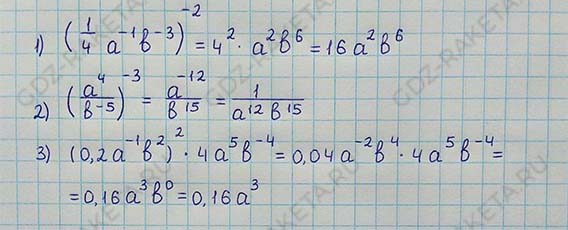 1) (1/4 a⁻¹b⁻³)⁻² = 4² · a²b⁶ = 16a²b⁶
2) (a⁴/b⁻⁵)⁻³ = a⁻¹²/b¹⁵ = 1/a¹²b¹⁵
3) (0,2a⁻¹b²)² · 4a⁵b⁻⁴ = 0,04a⁻²b⁴ · 4a⁵b⁻⁴ =
= 0,16a³b⁰ = 0,16a³
GDZ-RAKETA.RU